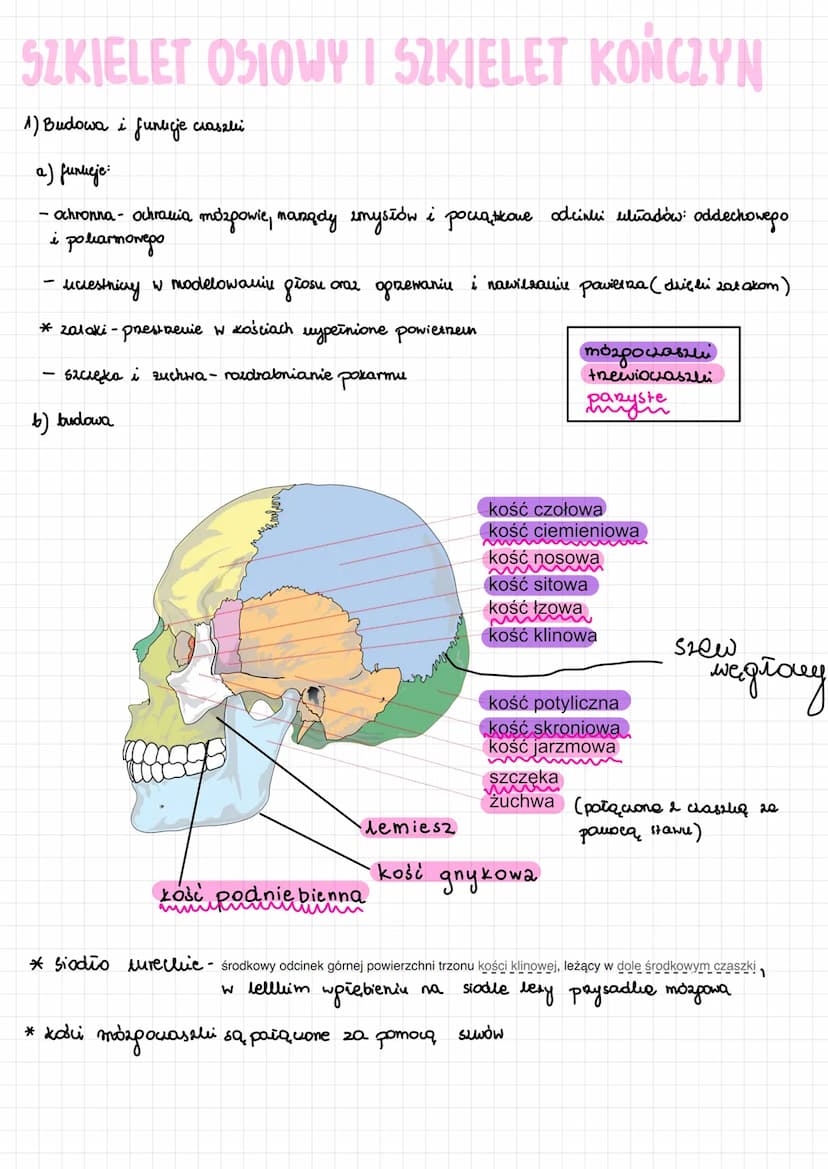 SZKIELET OSIOWY I SZKIELET KOŃCZYN
1) Budowa i funkcje czaszki
a) funkcje:
- ochronna - ochrania mózgowie, narządy zmysłów i początkowe odcinki układów: oddechowego
i pokarmowego
- uczestniczy w modelowaniu głosu oraz ogrzewaniu i nawilżaniu powietrza (dzięki zatokom)
* zatoki - przestrzenie w kościach wypełnione powietrzem
- szczęka i żuchwa - rozdrabnianie pokarmu
mózgoczaszki
trzewioczaszki
parzyste
b) budowa
kość czołowa
kość ciemieniowa
kość nosowa
kość sitowa
kość łzowa
kość klinowa
szew
węgłowy
kość potyliczna
kość skroniowa
kość jarzmowa
szczęka
żuchwa (połączona z czaszką za
pomocą stawu)
lemiesz
kość gnykowa
kość podniebienna
* siodło tureckie - środkowy odcinek górnej powierzchni trzonu kości klinowej, leżący w dole środkowym czaszki,
w lekkim wgłębieniu na siodle leży przysadka mózgowa
* kości mózgoczaszki są połączone za pomocą szwów